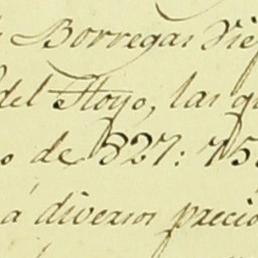 Borregas Vie
del Hoyo, las qu
o de 827: 75
a diversos precio